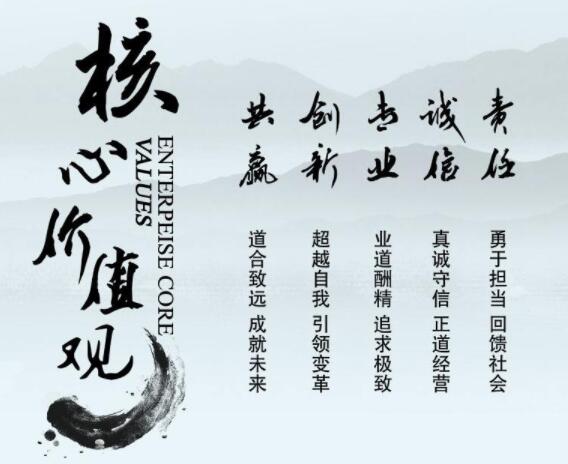 核心价值观
ENTERPEISE CORE
VALUES
共赢
道合致远 成就未来
创新
超越自我 引领变革
专业
业道酬精 追求极致
诚信
真诚守信 正道经营
责任
勇于担当 回馈社会